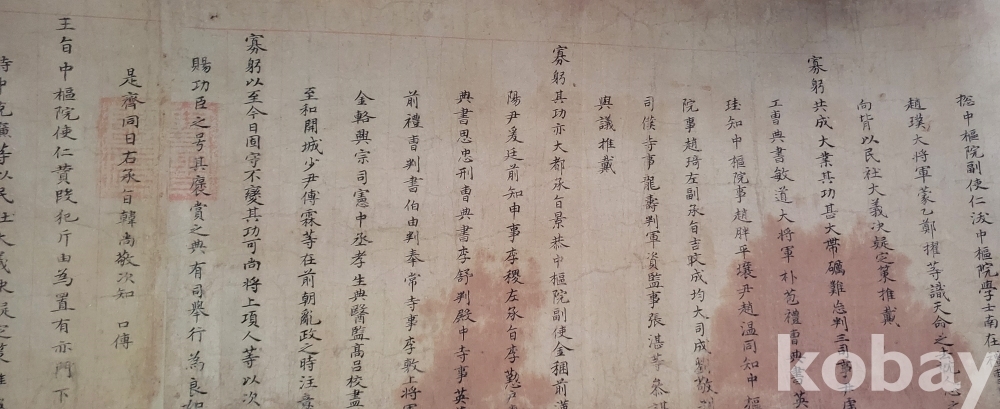 揔中樞院副使仁沃中樞院學士南在
趙璞大將軍蒙乙鄭擢等識天命之
向皆以民社大義决疑定策推戴
寡躬共成大業其功甚大帶礪難忘判三司事尹虎
工曹典書敏道大將軍朴苞禮曹典書英
珪知中樞院事趙胖平壤尹趙温同知中樞
院事趙琦左副承旨吉旼成均大司成劉敬
司僕寺事龍壽判軍資監事張湛等叅謀
與議推戴
寡躬其功亦大都承旨景恭中樞院副使金稇前漢
陽尹爰廷前知申事李稷左承旨李懃
典書思忠刑曹典書李舒判殿中寺事英
前禮曹判書伯由判奉常寺事李敷上將軍
金輅興宗司憲中丞孝生典醫監高吕校書
至和開城少尹傳霖等在前朝亂政之時注意
寡躬以至今日固守不變其功可尚將上項人等以次
賜功臣之号其褒賞之典有司舉行為良如
是齊同日右承旨韓尚敬次知 口傳
王旨中樞院使仁賛段犯斤由為置有亦門下
侍中克廉等以民社大義决疑定策推
kobay